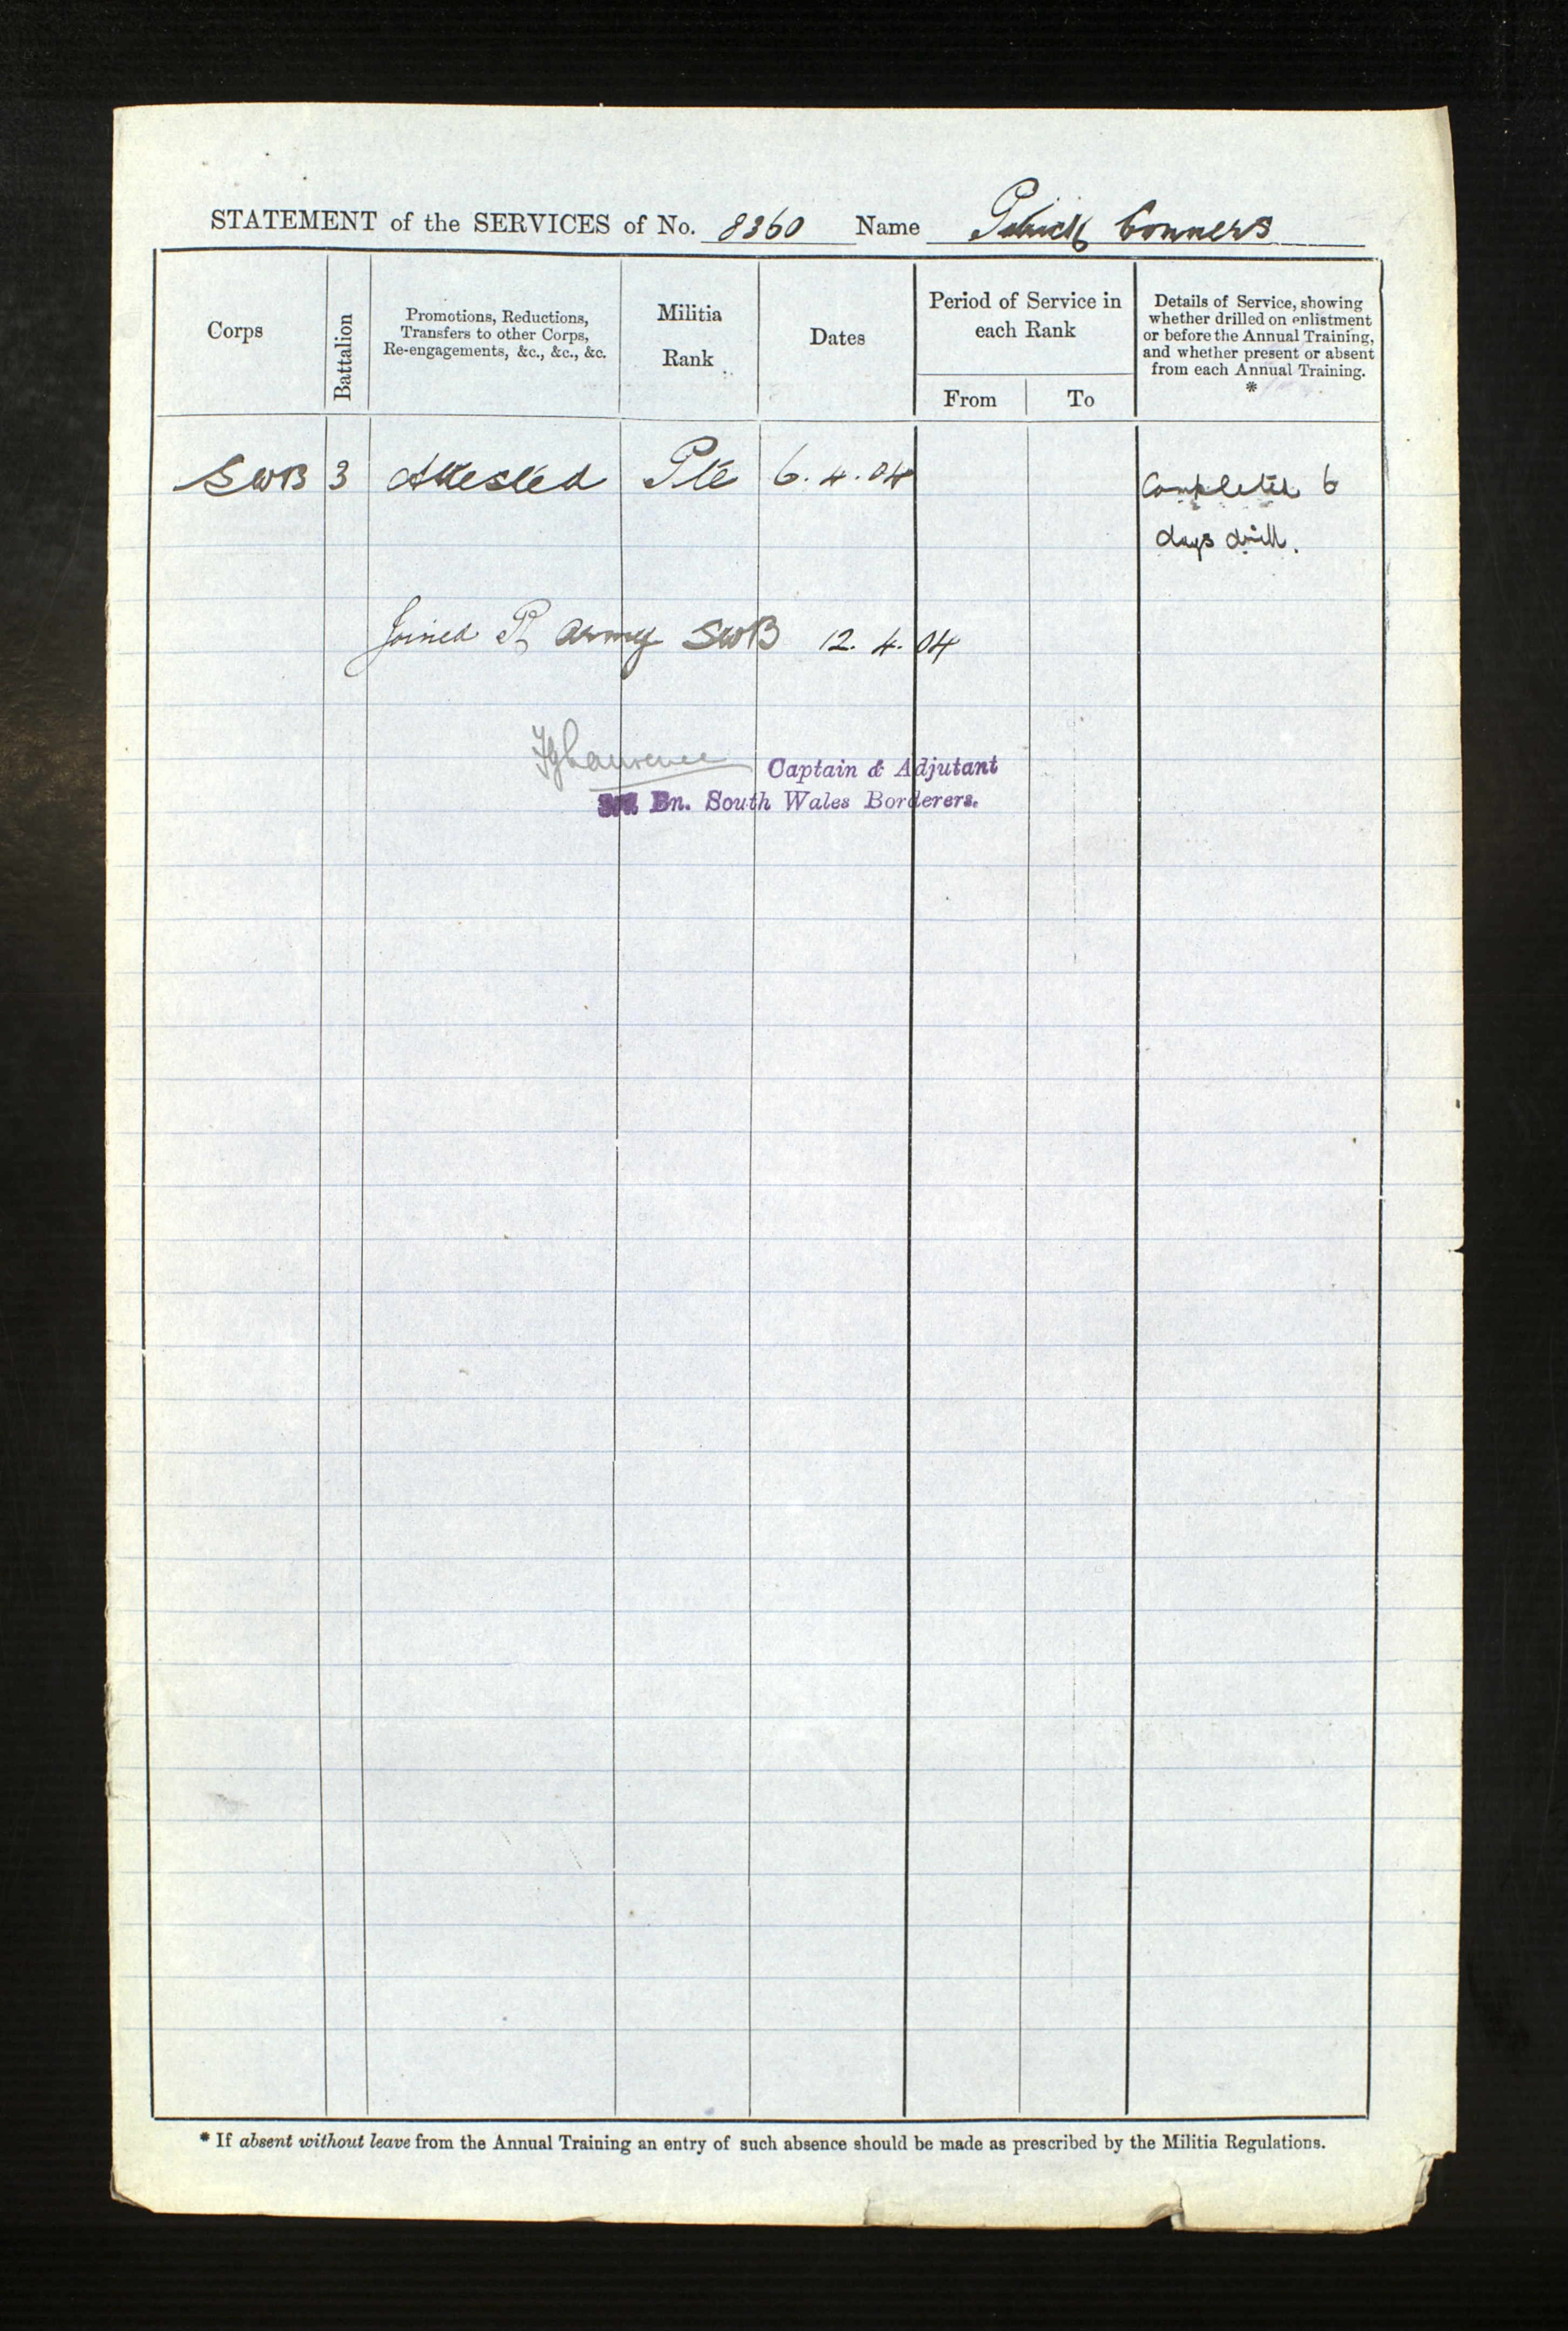 STATEMENT of the SERVICES of No. 8360 Name Patrick Conners
Corps
Battalion
Promotions, Reductions,
Transfers to other Corps,
Re-engagements, &c., &c., &c.
Militia
Rank
Dates
Period of Service in
each Rank
From To
Details of Service, showing
whether drilled on enlistment
or before the Annual Training,
and whether present or absent
from each Annual Training.
*
SWB 3 Attested Pte 6.4.04 Completed 6
days drill.
Joined R Army SWB 12.4.04
Captain & Adjutant
Bn. South Wales Borderers.
* If absent without leave from the Annual Training an entry of such absence should be made as prescribed by the Militia Regulations.